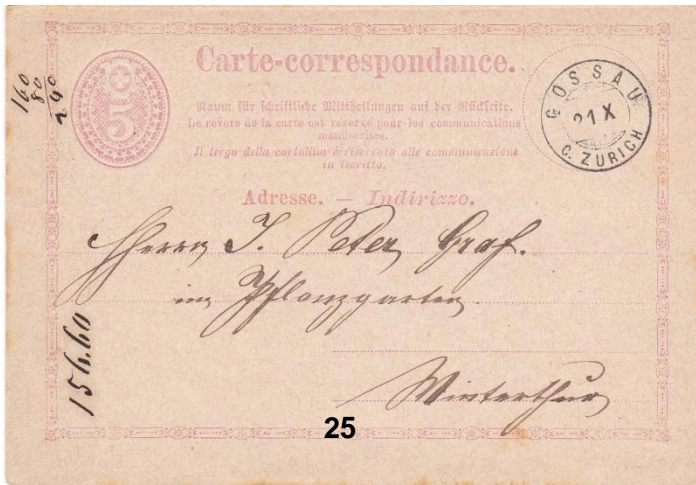 160
80
240
5
Carte-correspondance.
Raum für schriftliche Mittheilungen auf der Rückseite.
Le revers de la carte est réservé pour les communications
manuscrites.
Il tergo della cartolina è riservato alle communicazione
in iscritto.
GOSSAU
21 X
C. ZURICH
Adresse. — Indirizzo.
Herrn J. Peter Graf.
im Pflanzgarten
Winterthur
156.60
25